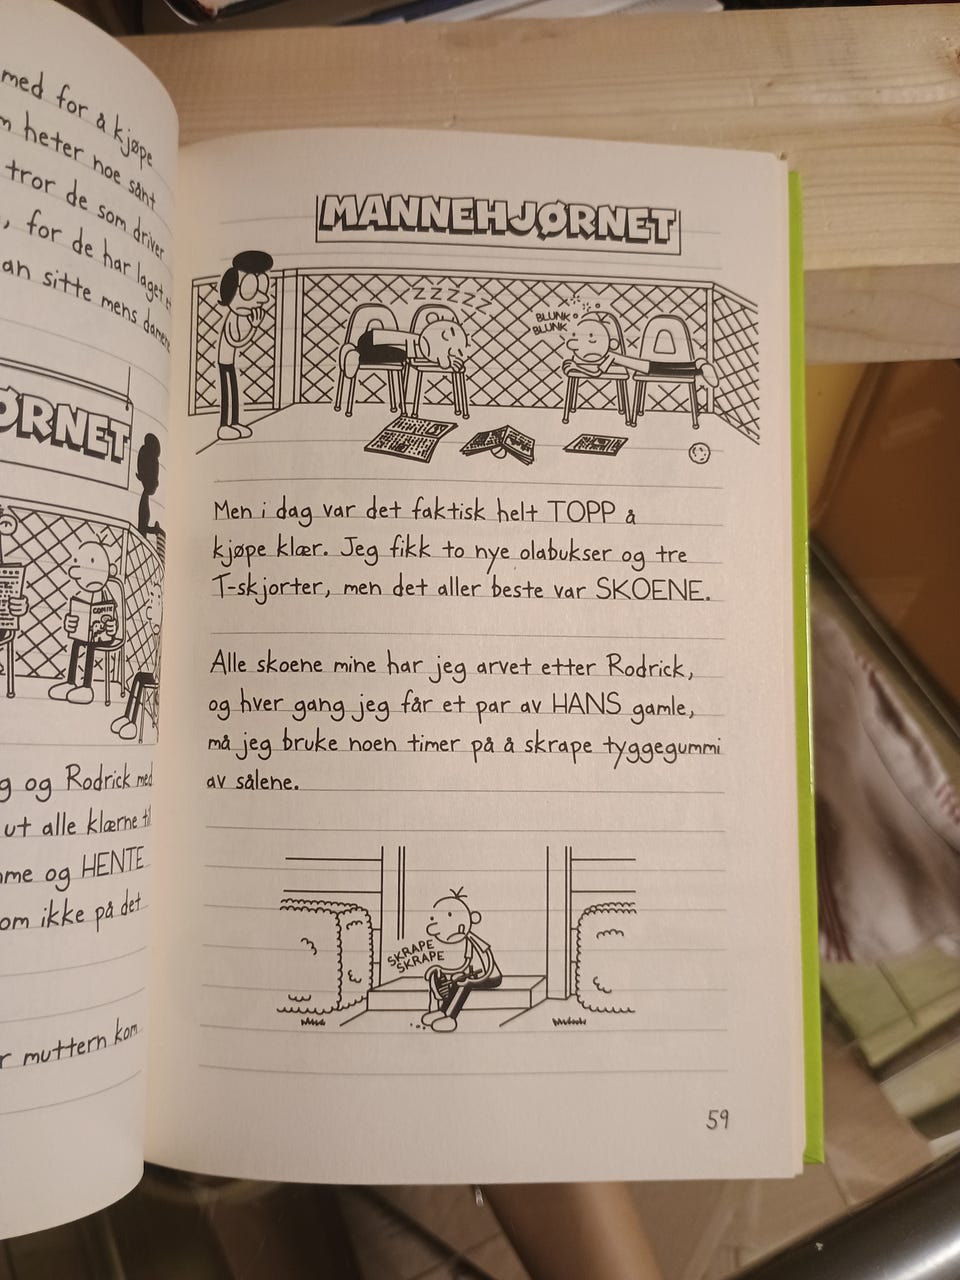 med for å kjøpe
heter noe sånt
tror de som driver
, for de har laget
an sitte mens damene
ØRNET
COMIC
g og Rodrick med
ut alle klærne til
me og HENTE
om ikke på det
r muttern kom
MANNEHJØRNET
ZZZZZZ
BLUNK
BLUNK
Men i dag var det faktisk helt TOPP å
kjøpe klær. Jeg fikk to nye olabukser og tre
T-skjorter, men det aller beste var SKOENE.
Alle skoene mine har jeg arvet etter Rodrick,
og hver gang jeg får et par av HANS gamle,
må jeg bruke noen timer på å skrape tyggegummi
av sålene.
SKRAPE
SKRAPE
59